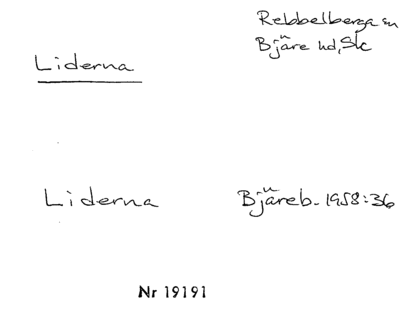 Rebbelberga sn
Bjäre hd, Sk
Liderna
Liderna
Bjäreb. 1958:36
Nr 19191